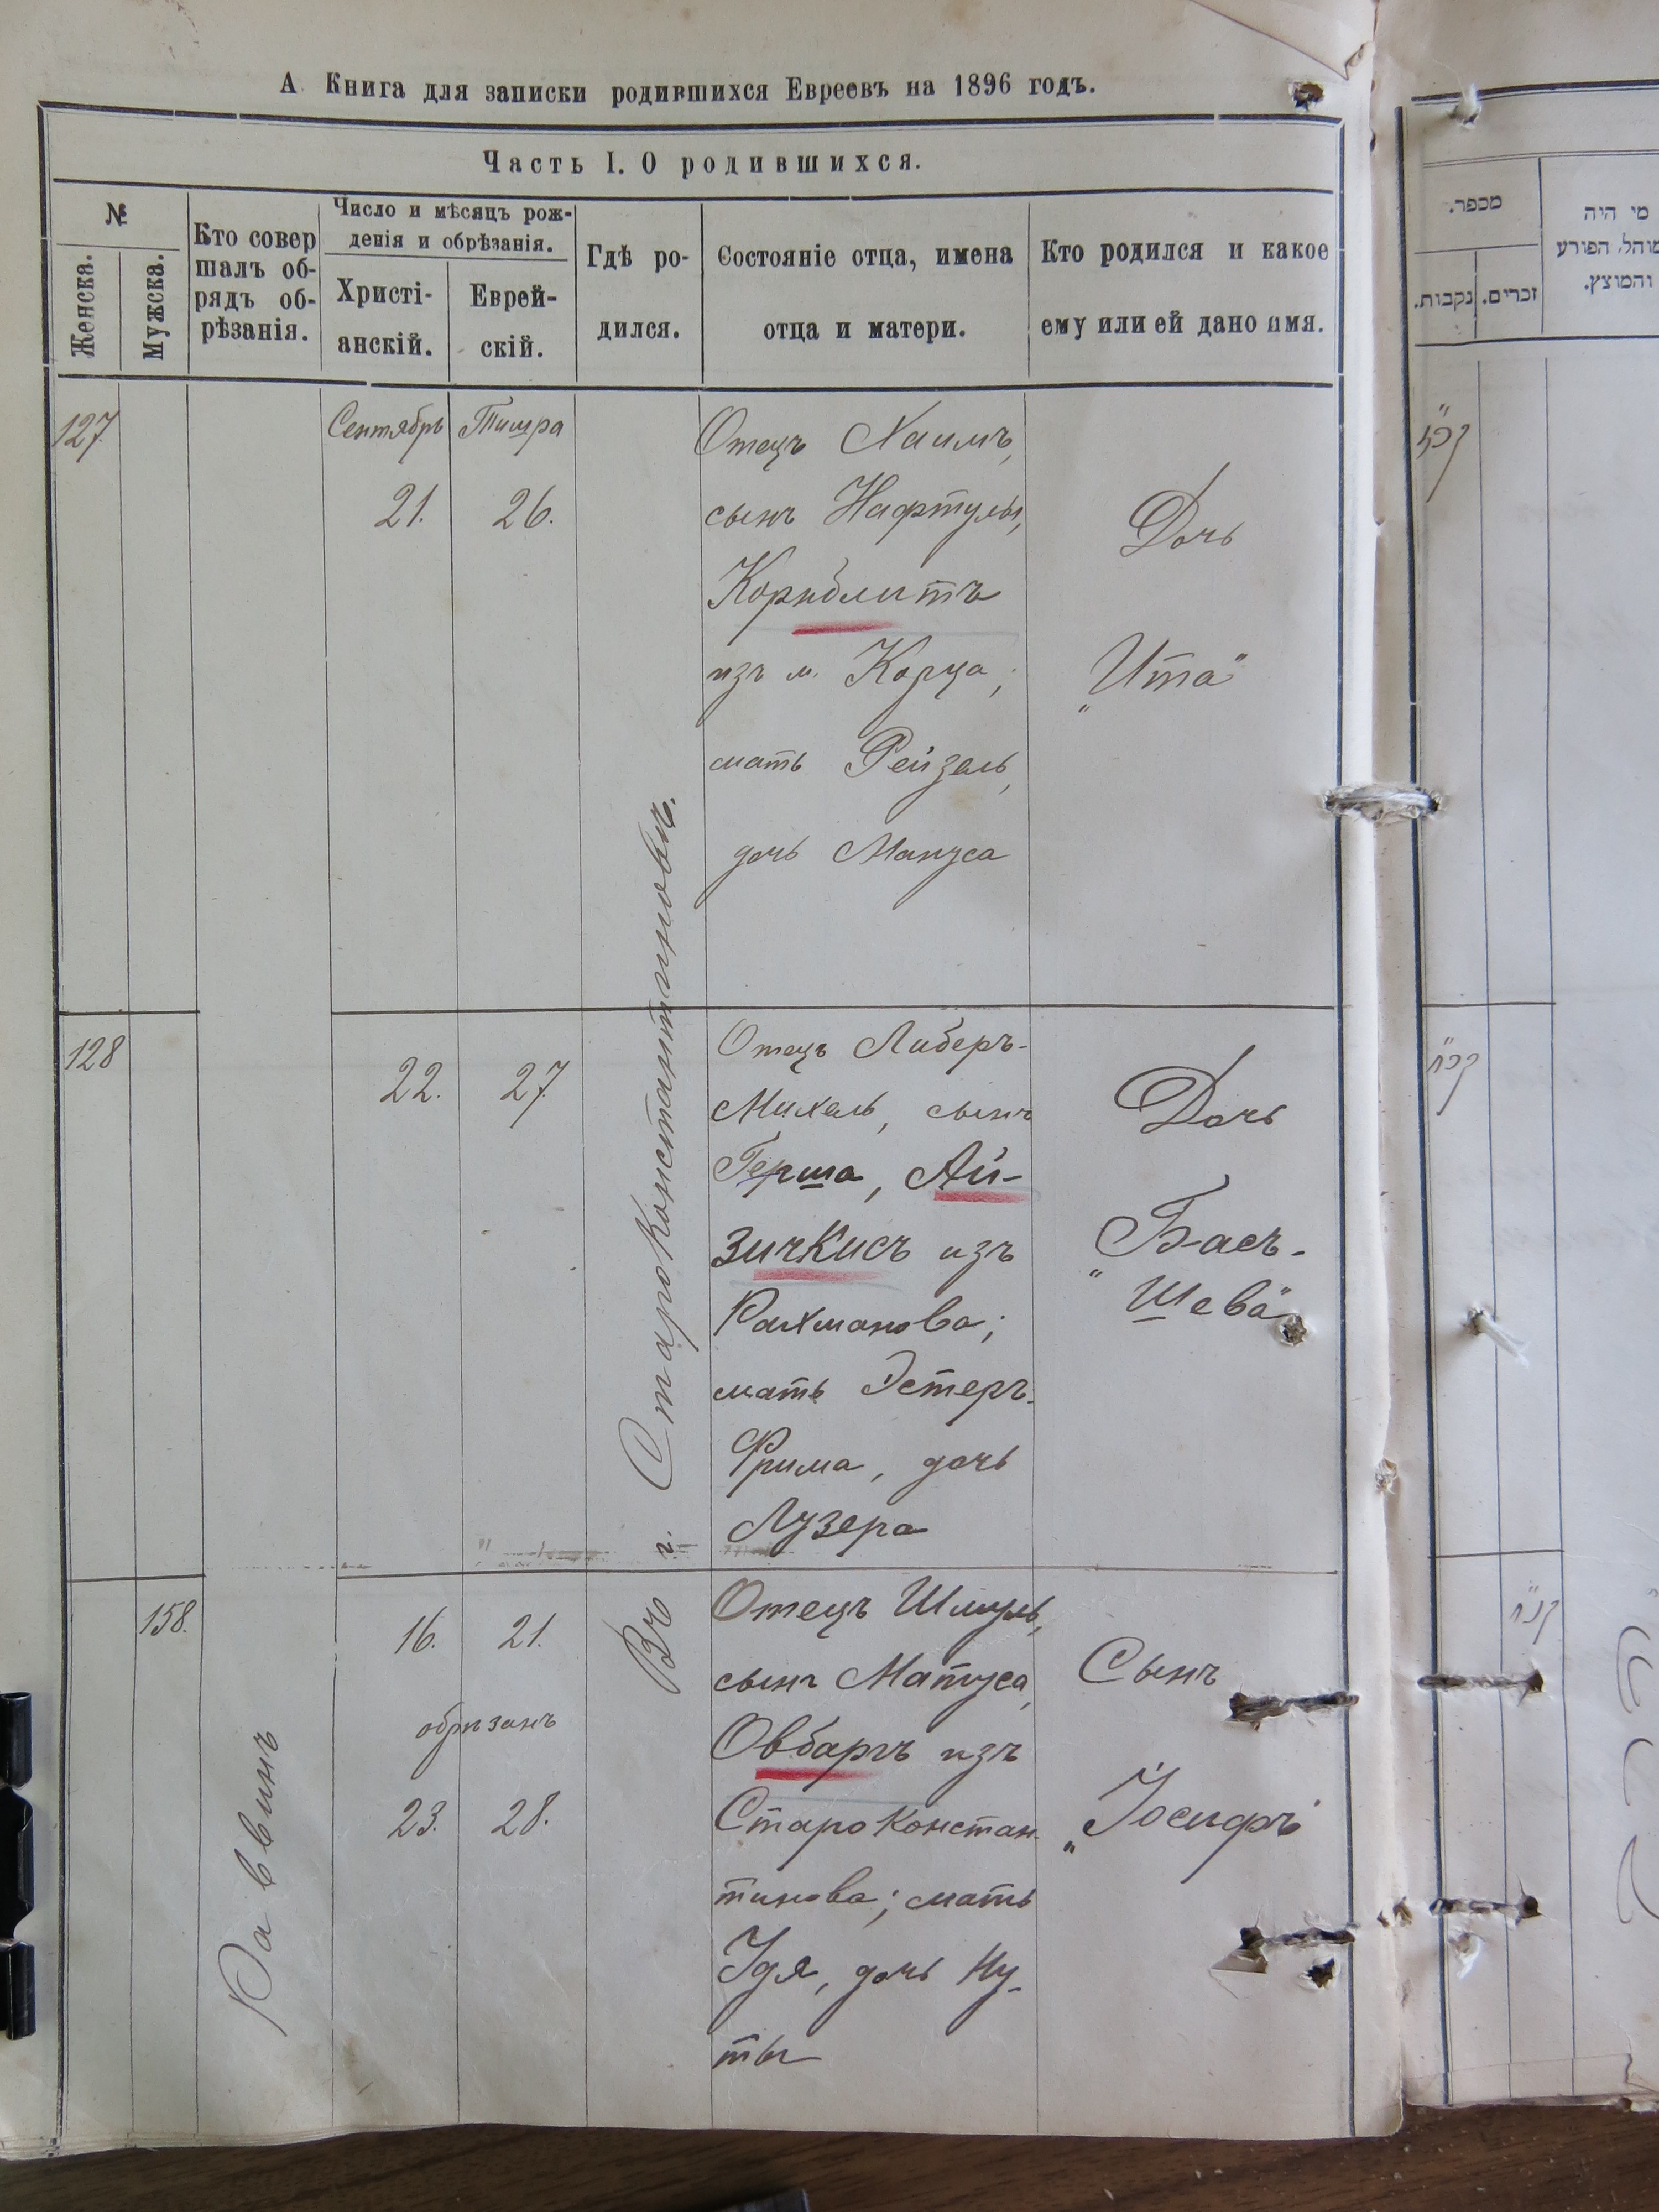 А. Книга для записки родившихся Евреевъ на 1896 годъ.
Часть I. О родившихся.
№
Женска.
Мужска.
Кто совер
шалъ об-
рядъ об-
рѣзанія.
Число и мѣсяцъ рож-
денія и обрѣзанія.
Христі-
анскій.
Еврей-
скій.
Гдѣ ро-
дился.
Состояніе отца, имена
отца и матери.
Кто родился и какое
ему или ей дано имя.
127
Сентябрь
Тишра
21.
26.
Отецъ Хаимъ,
сынъ Нафтулы,
Корнблитъ
изъ м. Корца;
мать Рейзель,
дочь Мануса
Дочь
„Ита“
128
22.
27.
Отецъ Либеръ-
Михель, сынъ
Герша, Ай-
зичкисъ изъ
Рахманова;
мать Эстеръ-
Фрима, дочь
Лузера
Дочь
„Басъ-
Шева“
158.
16.
21.
обрѣзанъ
23.
28.
Отецъ Шмуль,
сынъ Матуса,
Овбаръ изъ
Староконстан-
тинова; мать
Идя, дочь Ну-
ты
Сынъ
„Іосифъ“
Раввинъ
Въ г. Староконстантиновѣ.
מספר.
נקבות.
זכרים.
מי היה
המוהל, הפורע
והמוצץ.
קכ״ז
קכ״ח
קנ״ח